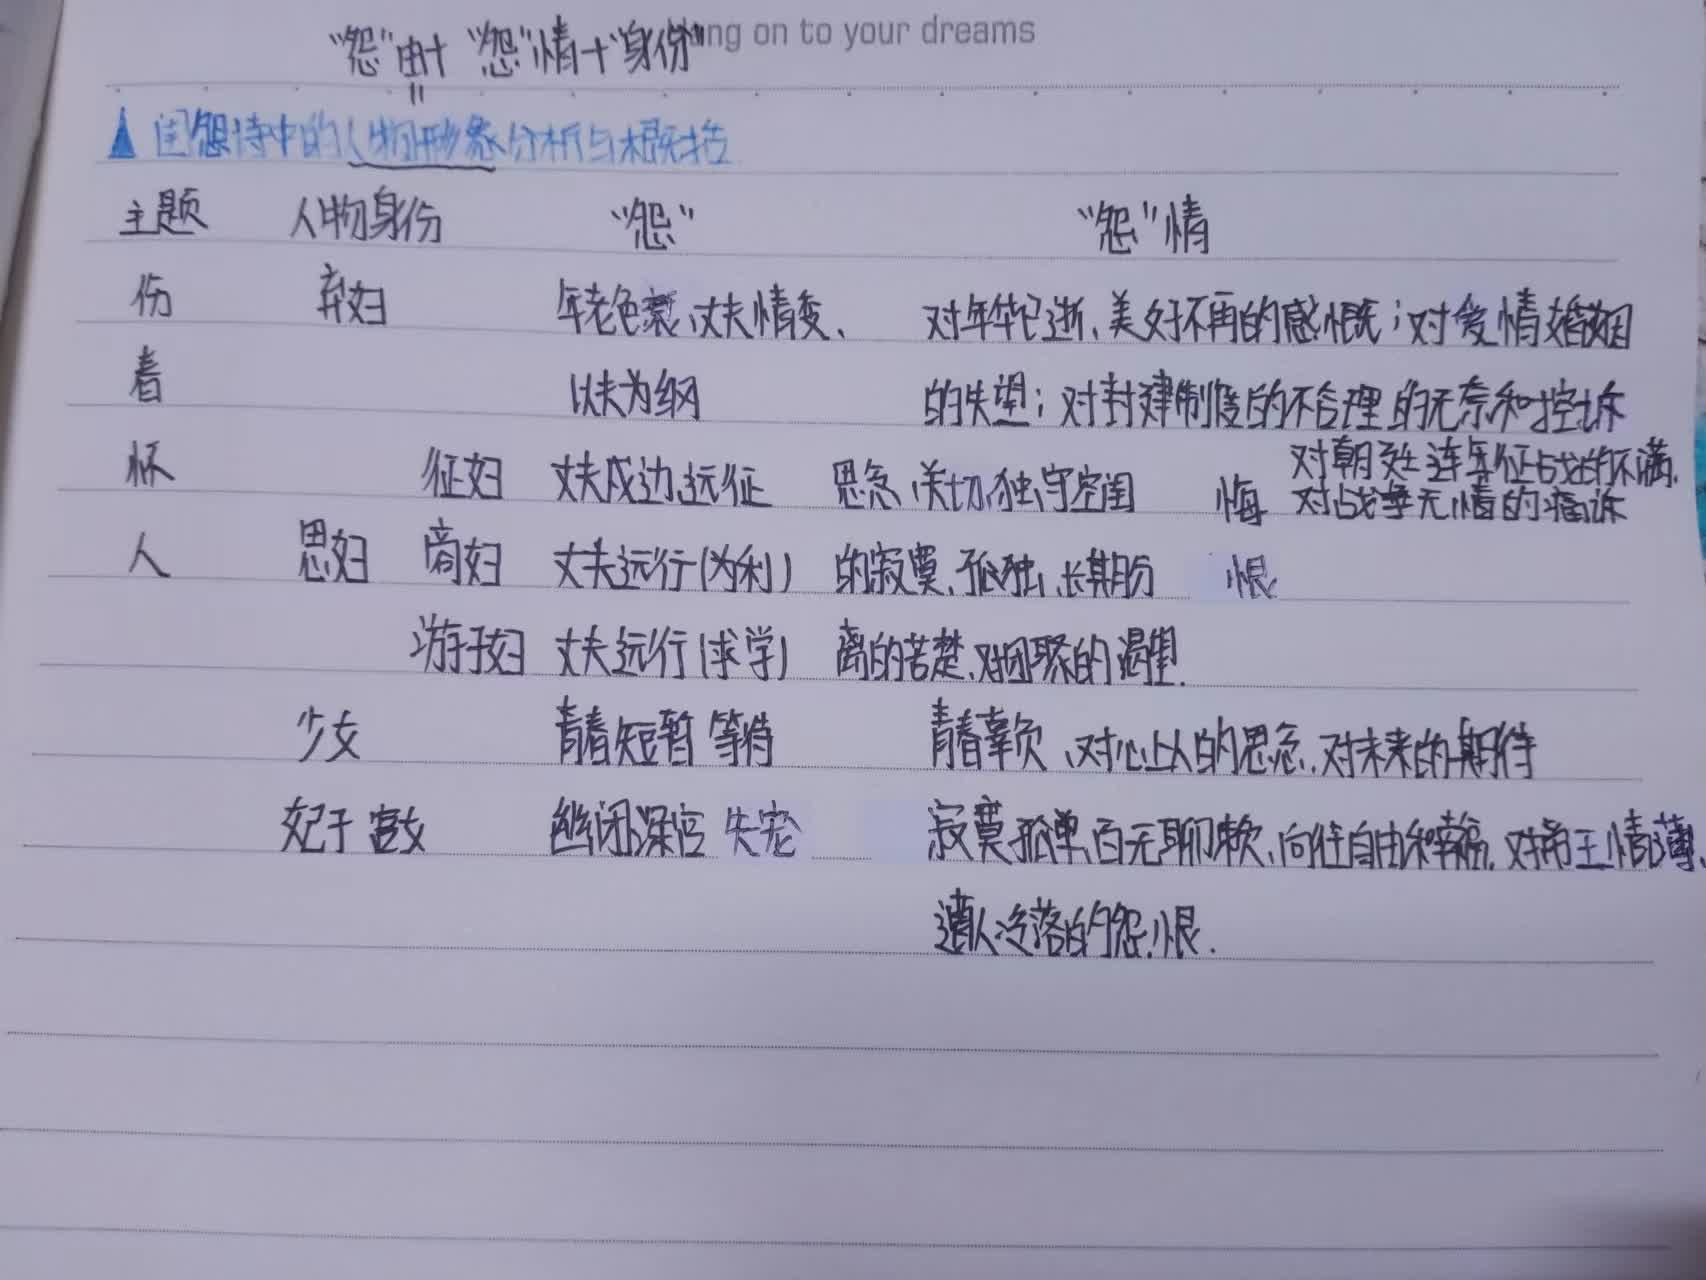 "怨"由+"怨"情+"身份"
ng on to your dreams
闺怨诗中的人物形象分析与概括
主题 人物身份 "怨" "怨"情
伤 弃妇 年老色衰、丈夫情变、 对年华已逝、美好不再的感慨；对爱情婚姻
春 以夫为纲 的失望；对封建制度的不合理的无奈和控诉
怀 征妇 丈夫戍边、远征 思念、关切、独守空闺 悔 对朝廷连年征战的不满、
对战争无情的痛诉
人 思妇 商妇 丈夫远行(为利) 的寂寞、孤独、长期分 恨
游子妇 丈夫远行(求学) 离的苦楚、对团聚的渴望.
少女 青春短暂 等待 青春辜负、对心上人的思念、对未来的期待
妃子 宫女 幽闭深宫 失宠 寂寞孤单、百无聊赖、向往自由和幸福、对帝王情薄、
遭人冷落的怨、恨.